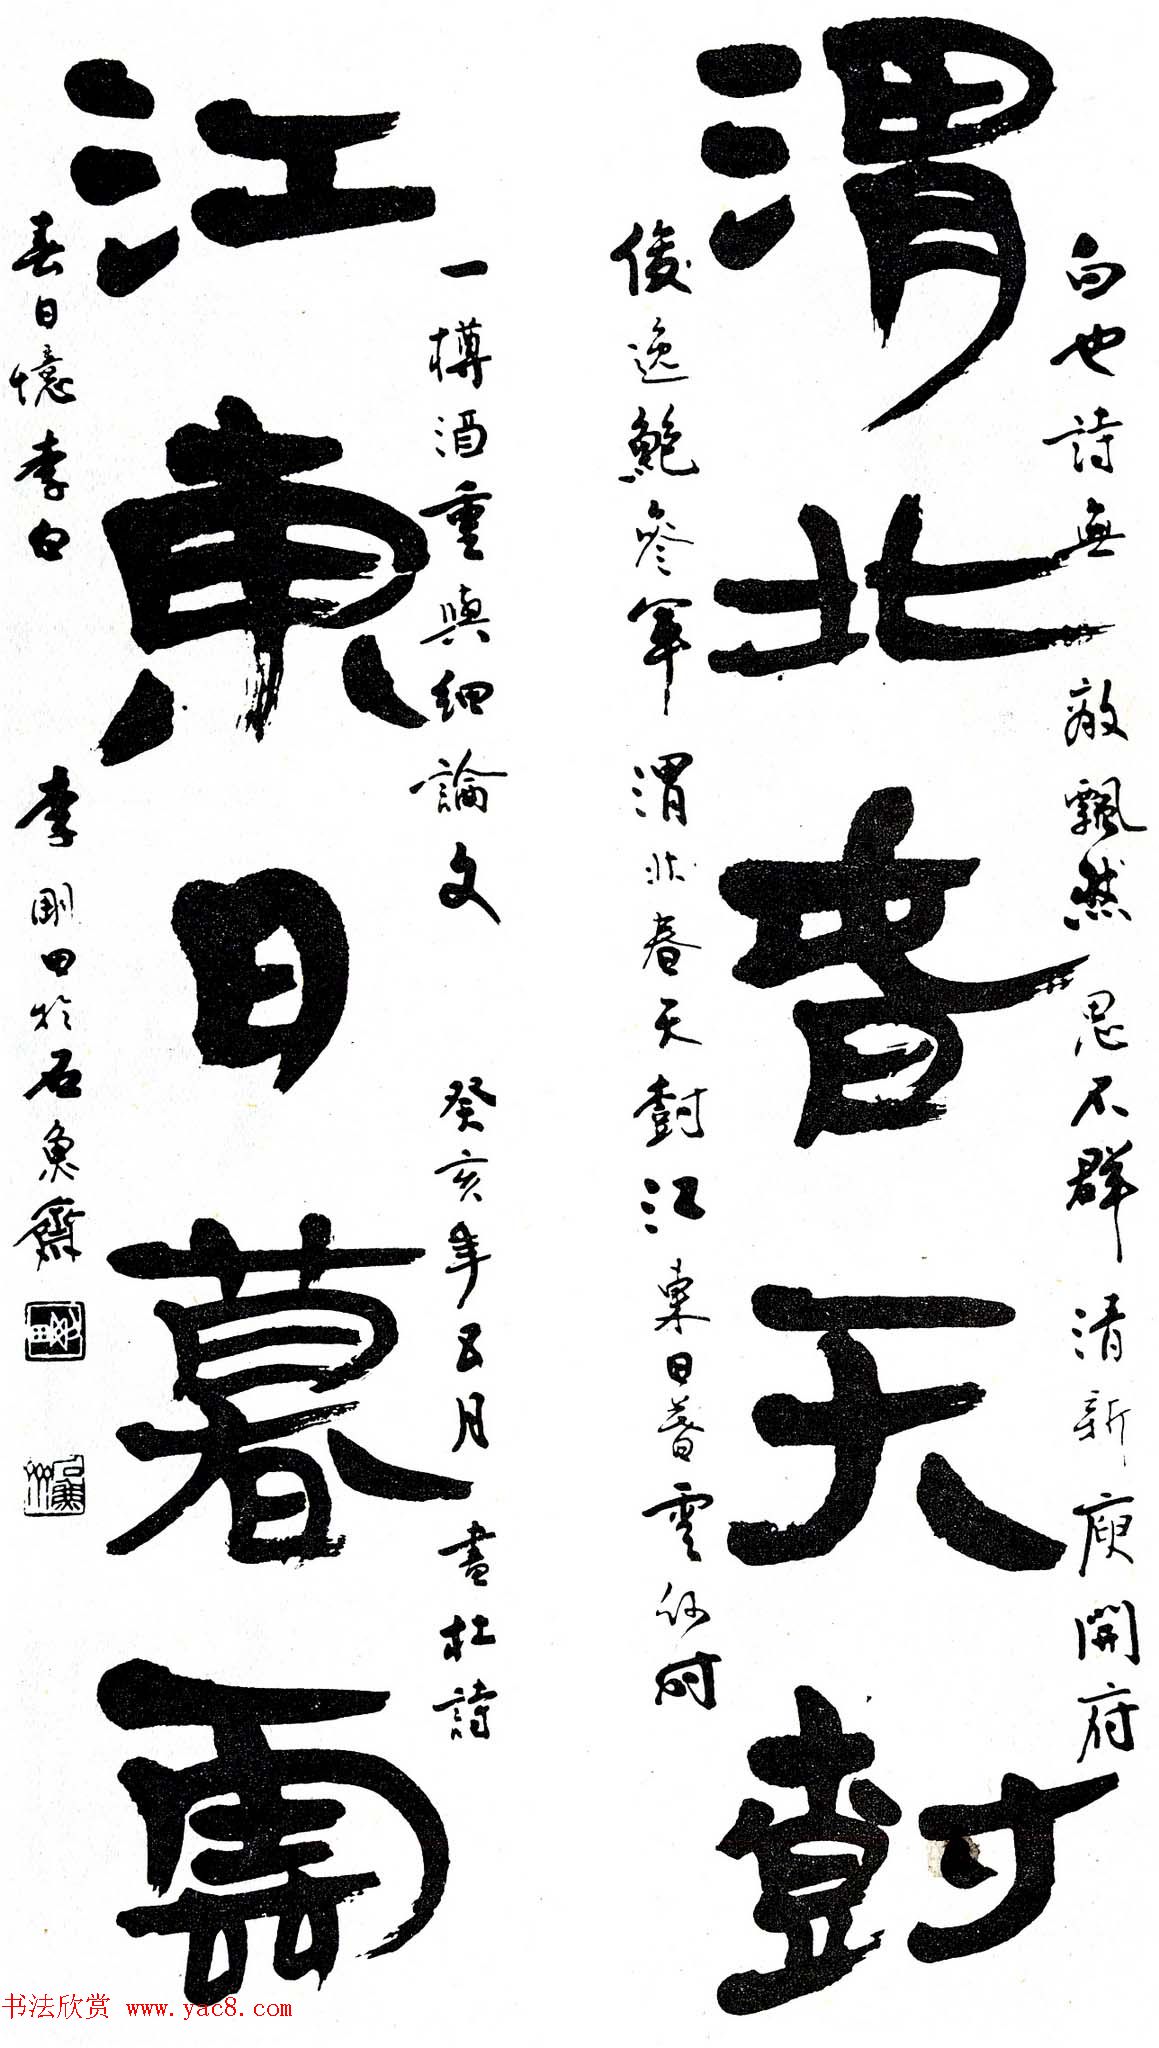 白也詩無敵飄然思不群清新庾開府
渭北春天封
俊逸鮑參軍渭北春天封江東日暮雲何時
一樽酒重與細論文 癸亥年五月書杜詩
江東日暮雲
春日憶李白 李剛田於石魚齋
书法欣赏 www.yac8.com